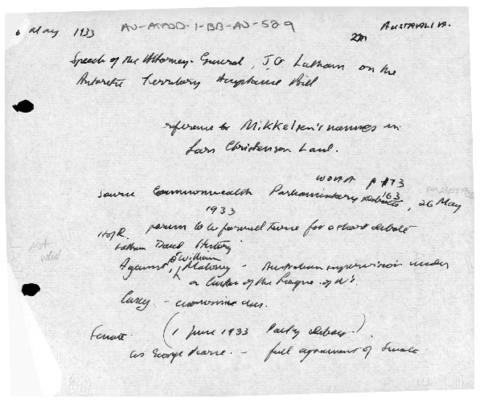 6 May 1933 AU-ATADD-1-BB-AU-589 AUSTRALIA.
Speech of the Attorney-General, J.G Latham on the
Antarctic Territory Acceptance Bill
reference to Mikkelsen's names in
Lars Christensen Land.
p 173
Source Commonwealth Parliamentary Debates, 26 May
1933
H of R. seems to be formal terms for a short debate
Latham
Against William Maloney - Australian supervision under
of the League of N's.
Casey -
Senate (1 June 1933 debate)
George Pearce - full agreement of Senate